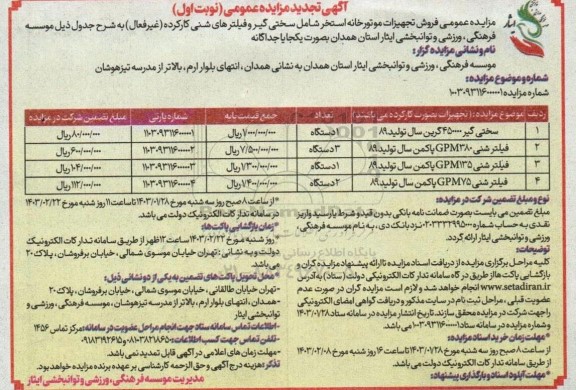 آگهی تجدید مزایده عمومی (نوبت اول)
مزایده عمومی فروش تجهیزات موتورخانه استخر شامل سختی گیر و فیلترهای شنی کارکرده (غیرفعال) به شرح جدول ذیل موسسه
فرهنگی، ورزشی و توانبخشی ایثار استان همدان بصورت یکجا یا جداگانه
نام و نشانی مزایده گزار:
موسسه فرهنگی، ورزشی و توانبخشی ایثار استان همدان به نشانی همدان، انتهای بلوار ارم، بالاتر از مدرسه تیزهوشان
شماره و موضوع مزایده:
شماره مزایده ۱۱۰۳۰۹۳۱۱۶۰۰۰۰۰۱
ردیف موضوع مزایده: (تجهیزات بصورت کارکرده می باشند) تعداد جمع قیمت پایه شماره پارتی مبلغ تضمین شرکت در مزایده
۱ سختی گیر ۴۵۰۰۰۰ گرین سال تولید ۸۹ ۱ دستگاه ریال ۸۰/۰۰۰/۰۰۰ ریال
۲ فیلتر شنی GPM۳۸۰ پاکمن سال تولید ۸۹ ۳ دستگاه ریال ریال
۳ فیلتر شنی GPM۱۳۵ پاکمن سال تولید ۸۹ ۱ دستگاه ریال ریال
۴ فیلتر شنی GPM۷۵ پاکمن سال تولید ۸۹ ۲ دستگاه ریال ریال
نوع و مبلغ تضمین شرکت در مزایده:
مبلغ تضمین می بایست بصورت ضمانت نامه بانکی بدون قید و شرط یا رسید واریز
نقدی به حساب شماره نزد بانک دی، به نام موسسه فرهنگی،
ورزشی و توانبخشی ایثار ارائه گردد.
توضیحات:
کلیه مراحل برگزاری مزایده از دریافت اسناد مزایده تا ارائه پیشنهاد مزایده گران و
بازگشایی پاکت ها از طریق درگاه سامانه تدارکات الکترونیکی دولت (ستاد) به آدرس
www.setadiran.ir انجام خواهد شد و لازم است مزایده گران در صورت عدم
عضویت قبلی، مراحل ثبت نام در سایت مذکور و دریافت گواهی امضای الکترونیکی
را جهت شرکت در مزایده محقق سازند. تاریخ انتشار مزایده در سامانه ستاد ۱۴۰۳/۰۱/۲۸
و شماره مزایده در سامانه ستاد ۱۱۰۳۰۹۳۱۱۶۰۰۰۰۰۱ می باشد.
*مهلت زمان خرید اسناد مزایده:
از ساعت ۸ صبح روز سه شنبه مورخ ۱۴۰۳/۰۱/۲۸ تا ساعت ۱۶ روز شنبه مورخ ۱۴۰۳/۰۲/۰۸
*مهلت آپلود اسناد و بارگذاری پیشنهاد:*
*از ساعت ۸ صبح روز سه شنبه مورخ ۱۴۰۳/۰۱/۲۸ تا ساعت ۱۱ روز شنبه مورخ ۱۴۰۳/۰۲/۲۲
در سامانه تدارکات الکترونیک دولت می باشد.
*زمان بازگشایی پاکت ها:
*روز شنبه مورخ ۱۴۰۳/۰۲/۲۲ ساعت ۱۲ ظهر از طریق سامانه تدارکات الکترونیک
دولت و به نشانی: تهران خیابان موسوی شمالی، خیابان برفروشان، پلاک ۲۰
می باشد.
*محل تحویل پاکت های تضمین به یکی از دو نشانی ذیل:
-تهران خیابان طالقانی، خیابان موسوی شمالی، خیابان برفروشان، پلاک ۲۰
-همدان، انتهای بلوار ارم، بالاتر از مدرسه تیزهوشان، موسسه فرهنگی، ورزشی و
توانبخشی ایثار
-اطلاعات تماس سامانه ستاد جهت انجام مراحل عضویت در سامانه: مرکز تماس ۱۴۵۶
-تلفن تماس جهت کسب اطلاعات:
-مهلت زمان های اعلامی در آگهی قابل تمدید نمی باشد.
تذکر: هزینه درج آگهی و حق الزحمه کارشناسی بر عهده برنده مزایده خواهد بود.
مدیریت موسسه فرهنگی، ورزشی و توانبخشی ایثار